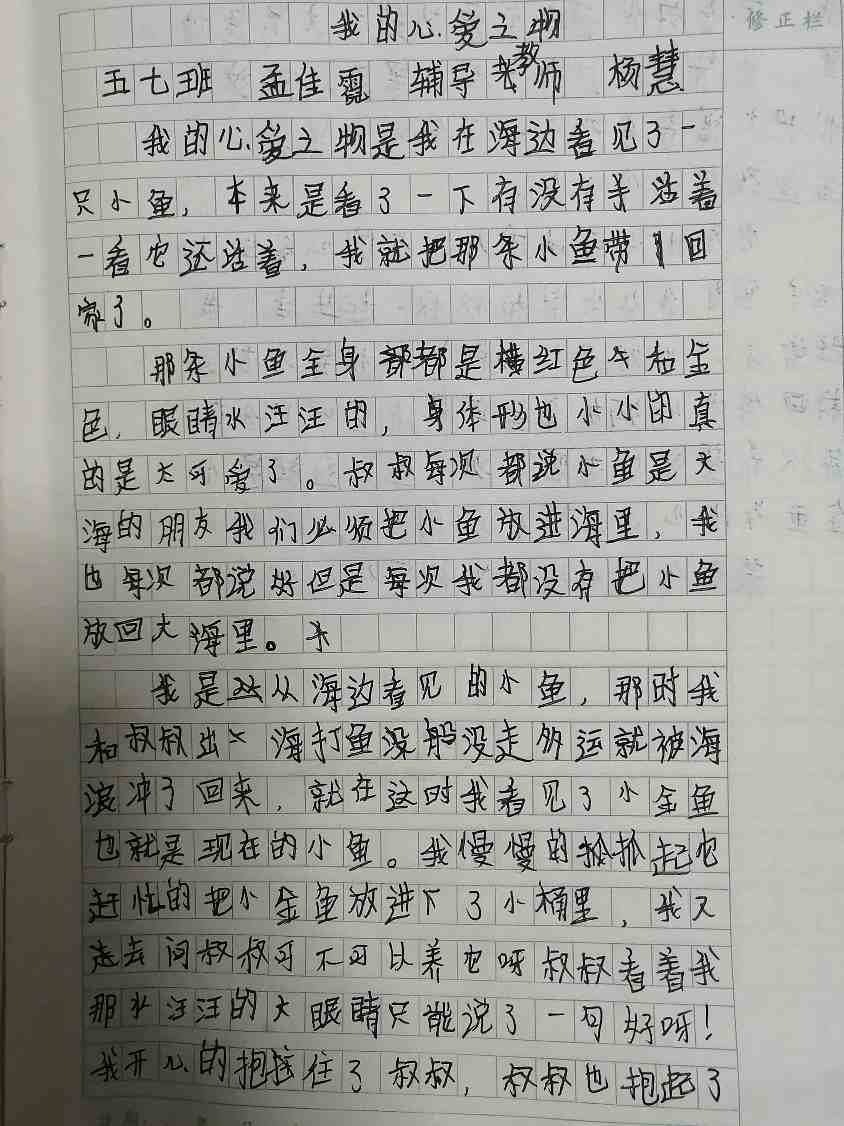 我的心爱之物
修正栏
五七班 孟佳霓 辅导教师 杨慧
我的心爱之物是我在海边看见了一
只小鱼，本来是看了一下有没有活着
一看它还活着，我就把那条小鱼带回
家了。
那条小鱼全身都是横红色和金
色，眼睛水汪汪的，身体形也小小的真
的是太可爱了。叔叔每次都说小鱼是大
海的朋友我们必须把小鱼放进海里，我
也每次都说好但是每次我都没有把小鱼
放回大海里。
我是从海边看见的小鱼，那时我
和叔叔出海打鱼没船没走多远就被海
浪冲了回来，就在这时我看见了小金鱼
也就是现在的小鱼。我慢慢的抓起它
赶忙的把小金鱼放进了小桶里，我又
走去问叔叔可不可以养它呀叔叔看着我
那水汪汪的大眼睛只能说了一句好呀！
我开心的抱住了叔叔，叔叔也抱起了